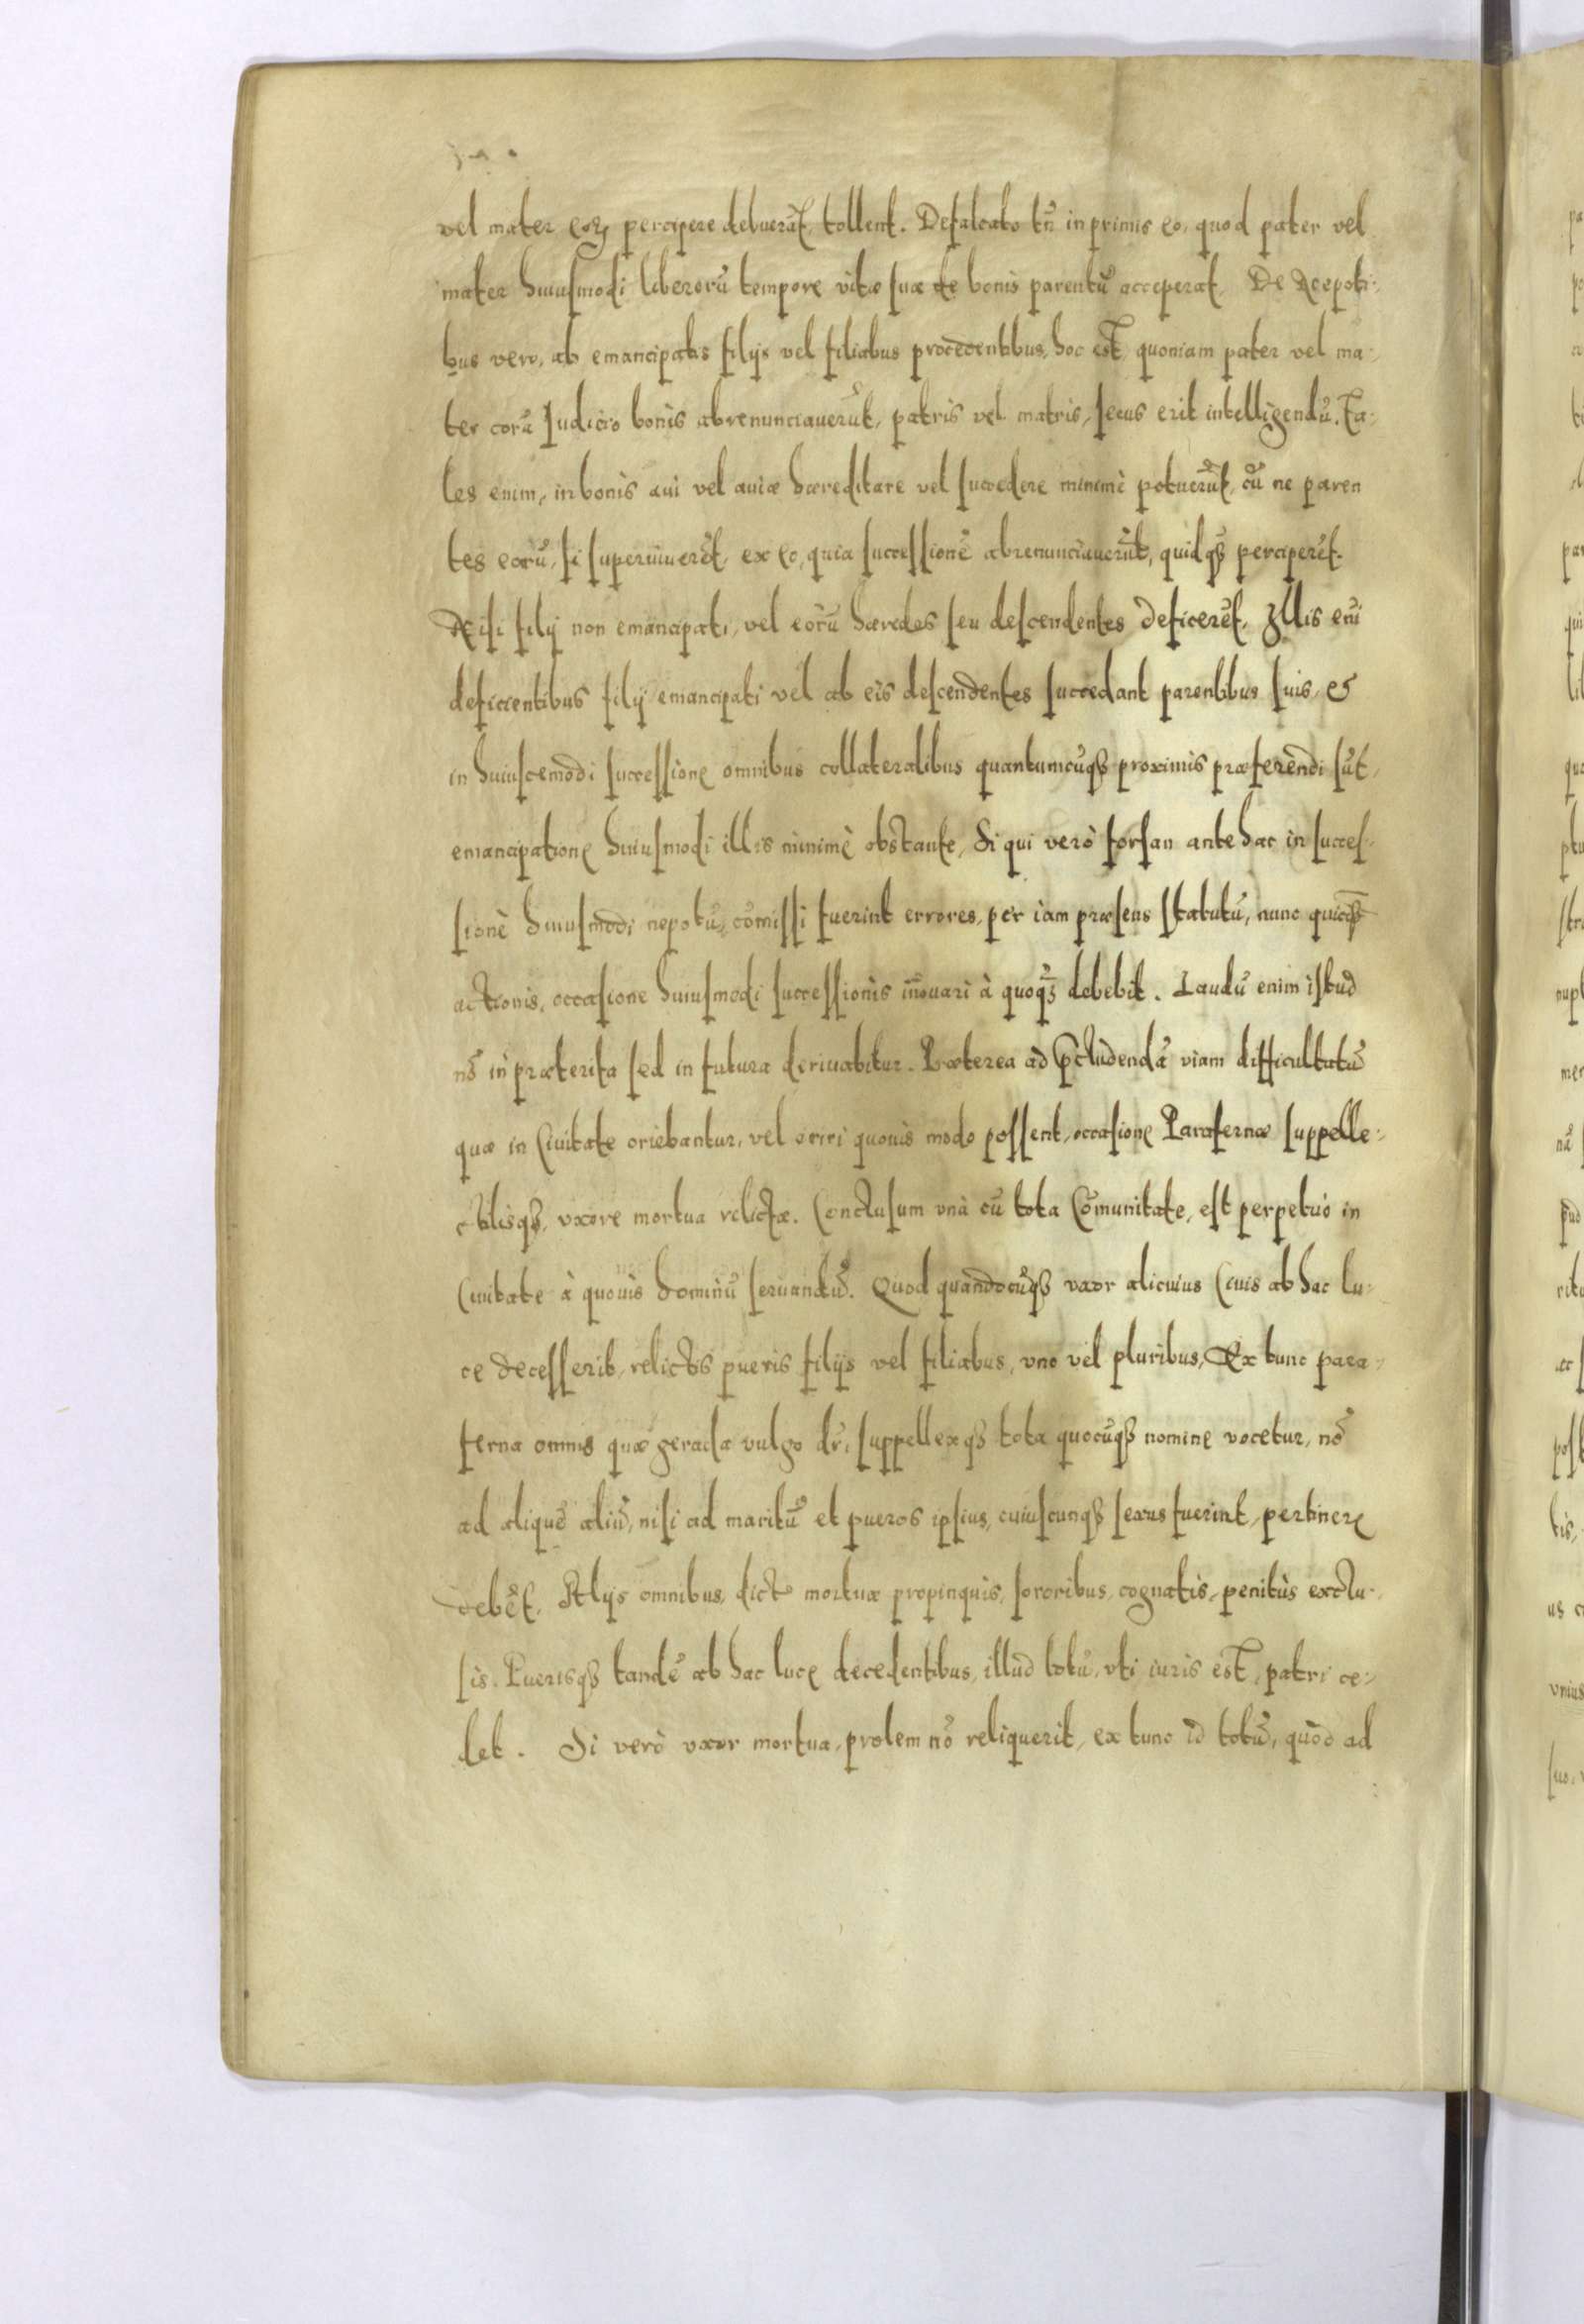 vel mater eoꝝ percipere debuerāt, tollent. Defalcato tn̄ in primis eo, quod pater vel
mater huiusmodi liberorū tempore vitæ suæ de bonis parentū acceperat. De Nepoti-
bus vero, ab emancipatis filijs vel filiabus procedentibus, hoc est, quoniam pater vel ma-
ter eorū Iudicio bonis abrenunciauerūt, patris vel matris, secus erit intelligendū. Ta-
les enim, in bonis aui vel auiæ hæreditare vel succedere minimè potuerūt, cū ne paren
tes eorū, si superuiuerēt, ex eo, quia successionē abrenunciauerūt, quidqȝ perciperēt.
Nisi filij non emancipati, vel eorū hæredes seu descendentes deficerēt, Illis eni
deficientibus filij emancipati vel ab eis descendentes succedant parentibus suis, et
in huiuscemodi successione omnibus collateralibus quantumcūqȝ proximis præferendi sūt,
emancipatione huiusmodi illis minimè obstante, Si qui verò forsan ante hac in succes-
sionè huiusmodi nepotū, cōmissi fuerint errores, per iam præsens statutū, nunc
actionis, occasione huiusmodi successionis īnouari à quoqȝ debebit. Laudū enim istud
nō in præterita sed in futura deriuabitur. Præterea ad p̄cludendā viam difficultatū
quæ in Ciuitate oriebantur, vel oriri quouis modo possent, occasione Parafernæ suppelle-
ctilisqȝ, vxore mortua relictæ. Conclusum vnà cū tota Cōmunitate, est perpetuò in
Ciuitate à quouis hominū seruandū. Quod quandocūqȝ vxor alicuius Ciuis ab hac lu-
ce decesserit, relictis pueris filijs vel filiabus, vno vel pluribus, Ex tunc para-
ferna omnis quæ gerada vulgo dr̄, suppellexqȝ tota quocūqȝ nomine vocetur, nō
ad aliquē aliū, nisi ad maritū et pueros ipsius, cuiuscunqȝ sexus fuerint, pertinere
debēt. Alijs omnibus, dictæ mortuæ propinquis, sororibus, cognatis, penitùs exclu-
sis. Puerisqȝ tandē ab hac luce decedentibus, illud totū, vti iuris est, patri ce-
det. Si verò vxor mortua, prolem nō reliquerit, ex tunc id totū, quod ad